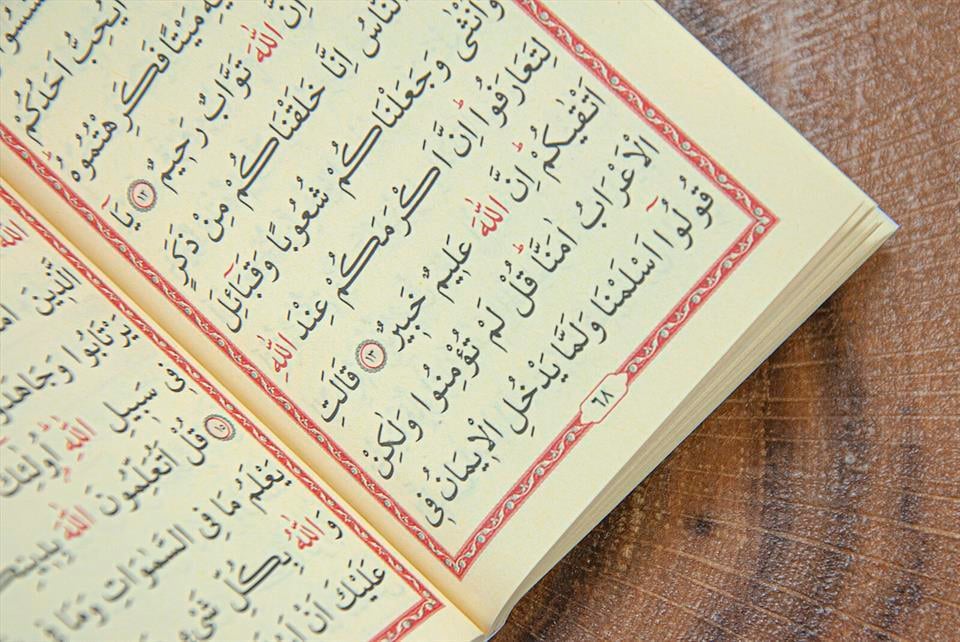 اَيُحِبُّ اَحَدُكُمْ
مَيْتًا فَكَرِهْتُمُوهُ
اِنَّ اللّٰهَ تَوَّابٌ رَحِيمٌ ﴿١٢﴾ يَٓا
النَّاسُ اِنَّا خَلَقْنَاكُمْ مِنْ ذَكَرٍ
وَاُنْثٰى وَجَعَلْنَاكُمْ شُعُوبًا وَقَبَٓائِلَ
لِتَعَارَفُوا اِنَّ اَكْرَمَكُمْ عِنْدَ اللّٰهِ
اَتْقٰيكُمْ اِنَّ اللّٰهَ عَلِيمٌ خَبِيرٌ ﴿١٣﴾ قَالَتِ
الْاَعْرَابُ اٰمَنَّا قُلْ لَمْ تُؤْمِنُوا وَلٰكِنْ
قُولُٓوا اَسْلَمْنَا وَلَمَّا يَدْخُلِ الْاِيمَانُ فِي
٦٨
اللّٰهَ
الَّذِينَ
يَرْتَابُوا وَجَاهَدُوا
فِي سَبِيلِ اللّٰهِ اُولٰٓئِكَ
﴿١٥﴾ قُلْ اَتُعَلِّمُونَ اللّٰهَ
يَعْلَمُ مَا فِي السَّمٰوَاتِ وَمَا فِي
وَاللّٰهُ بِكُلِّ شَيْءٍ
عَلَيْكَ اَنْ